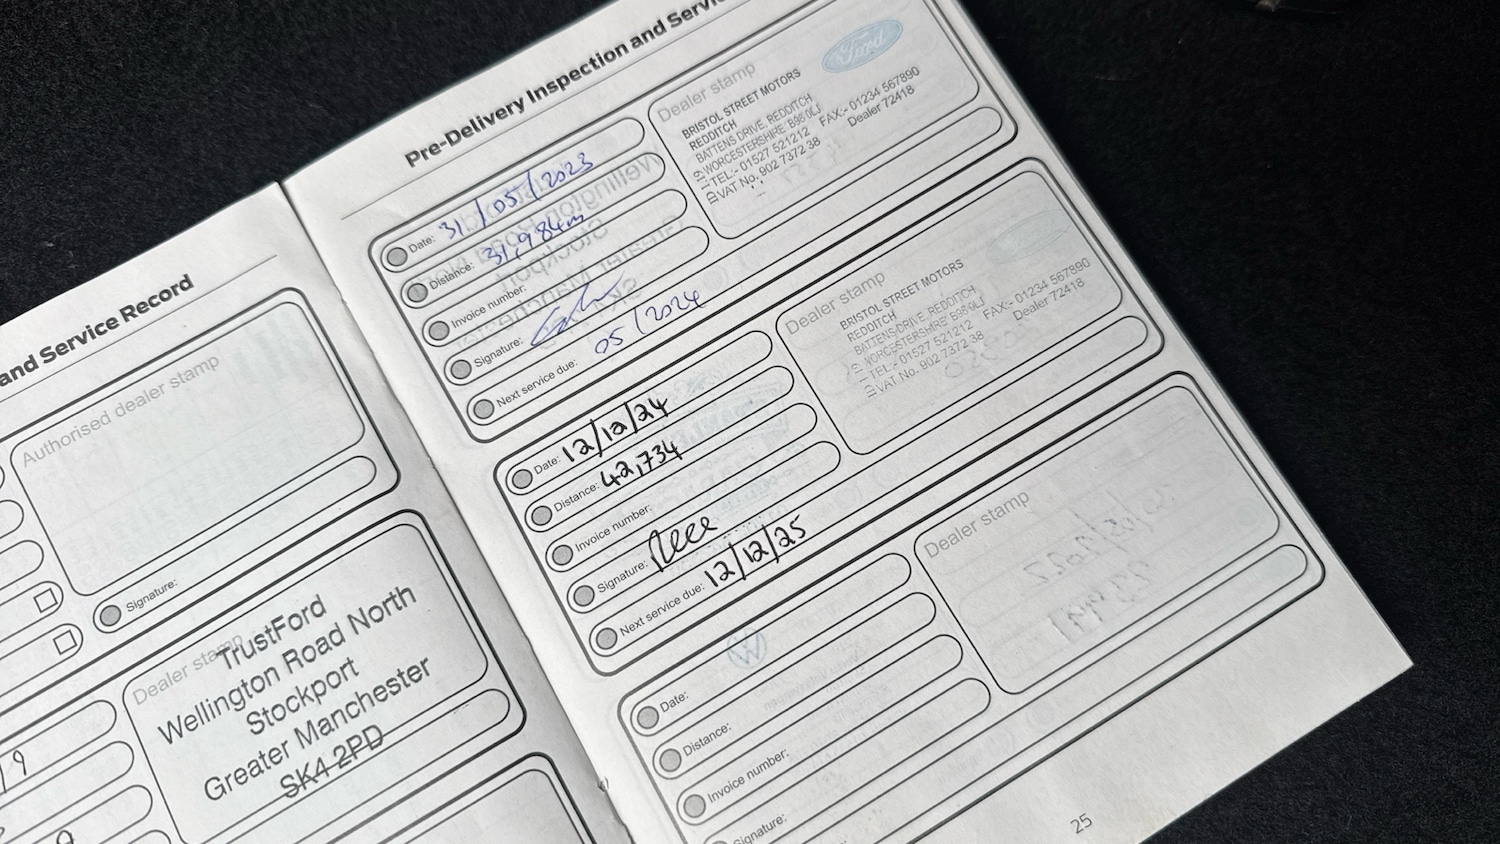 and Service Record
Authorised dealer stamp
Signature:
Dealer stamp
TrustFord
Wellington Road North
Stockport
Greater Manchester
SK4 2PD
Pre-Delivery Inspection and Servi
Date: 31/05/2023
Distance: 31,984m
Invoice number:
Signature:
Next service due: 05/2024
Dealer stamp
Ford
BRISTOL STREET MOTORS
REDDITCH
BATTENS DRIVE, REDDITCH
WORCESTERSHIRE B98 0LJ
TEL:- 01527 521212 FAX:- 01234 567890
VAT No. 902 7372 38 Dealer 72418
Date: 12/12/24
Distance: 42,734
Invoice number:
Signature:
Next service due: 12/12/25
Dealer stamp
BRISTOL STREET MOTORS
REDDITCH
BATTENS DRIVE, REDDITCH
WORCESTERSHIRE B98 0LJ
TEL:- 01527 521212 FAX:- 01234 567890
VAT No. 902 7372 38 Dealer 72418
Date:
Distance:
Invoice number:
Signature:
Dealer stamp
25